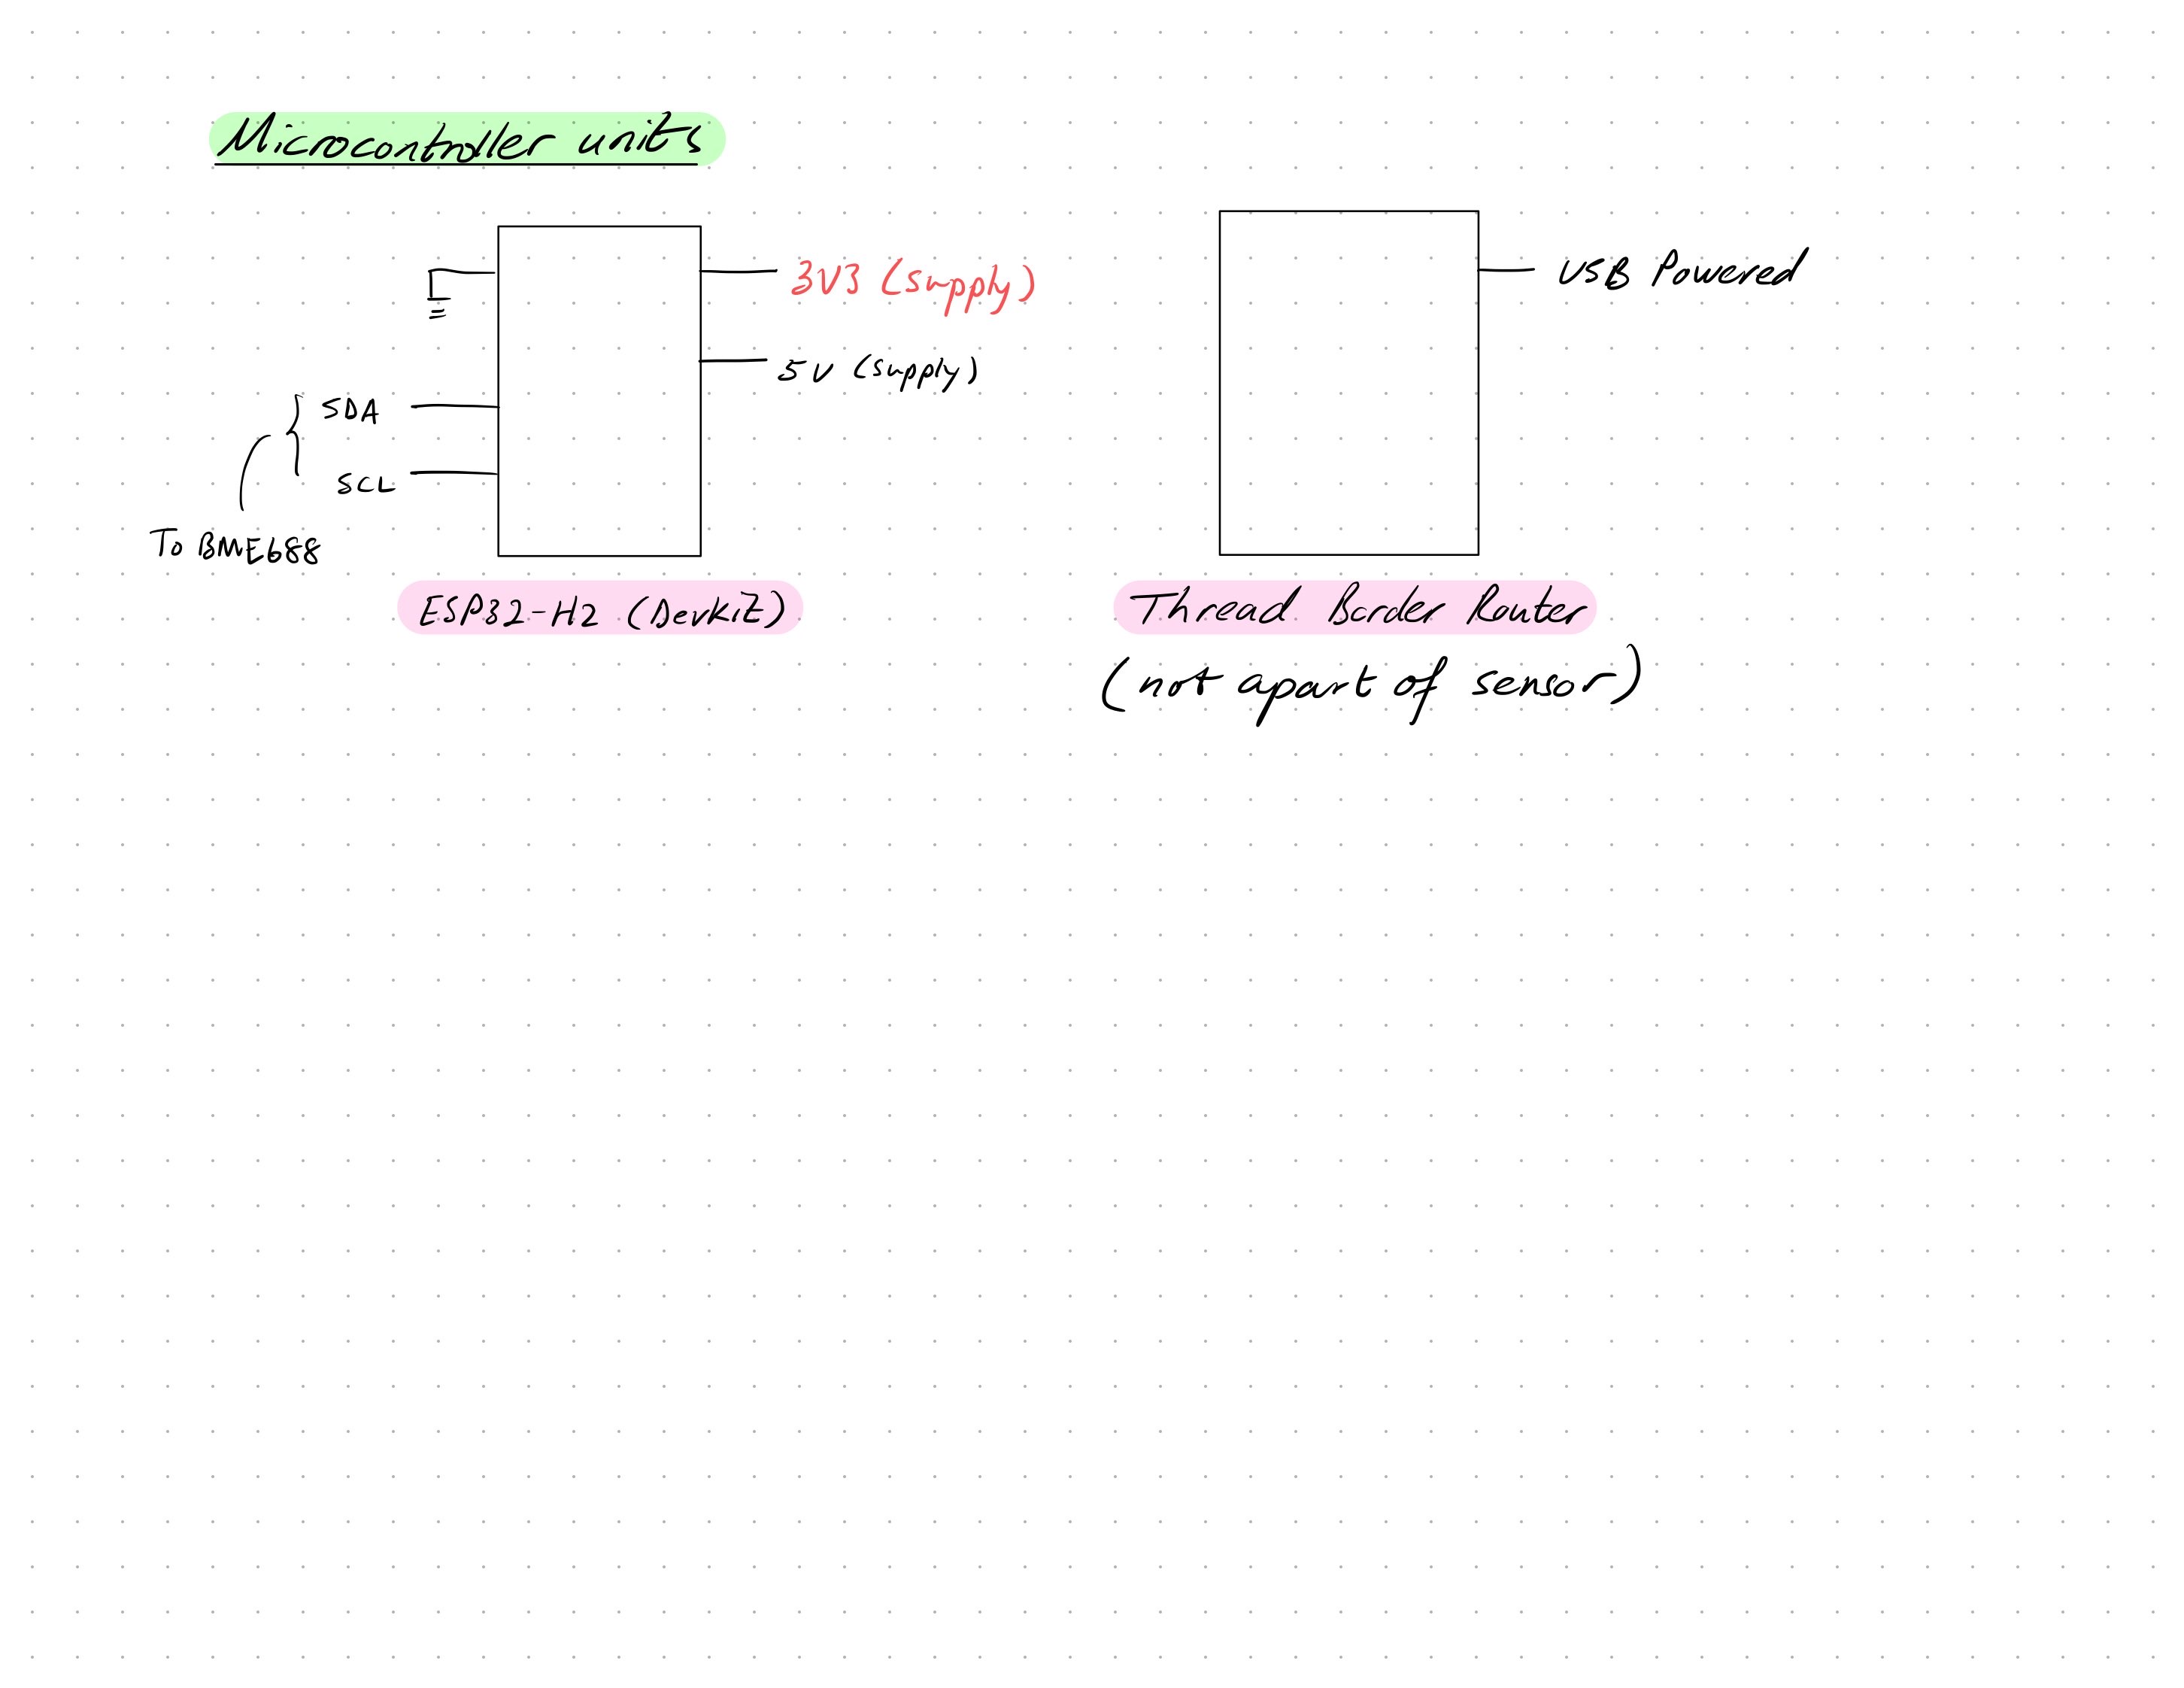 Microcontroller units
3V3 (supply)
5V (supply)
SDA
SCL
To BME688
ESP32-H2 (DevKit)
USB Powered
Thread Border Router
(not apart of sensor)